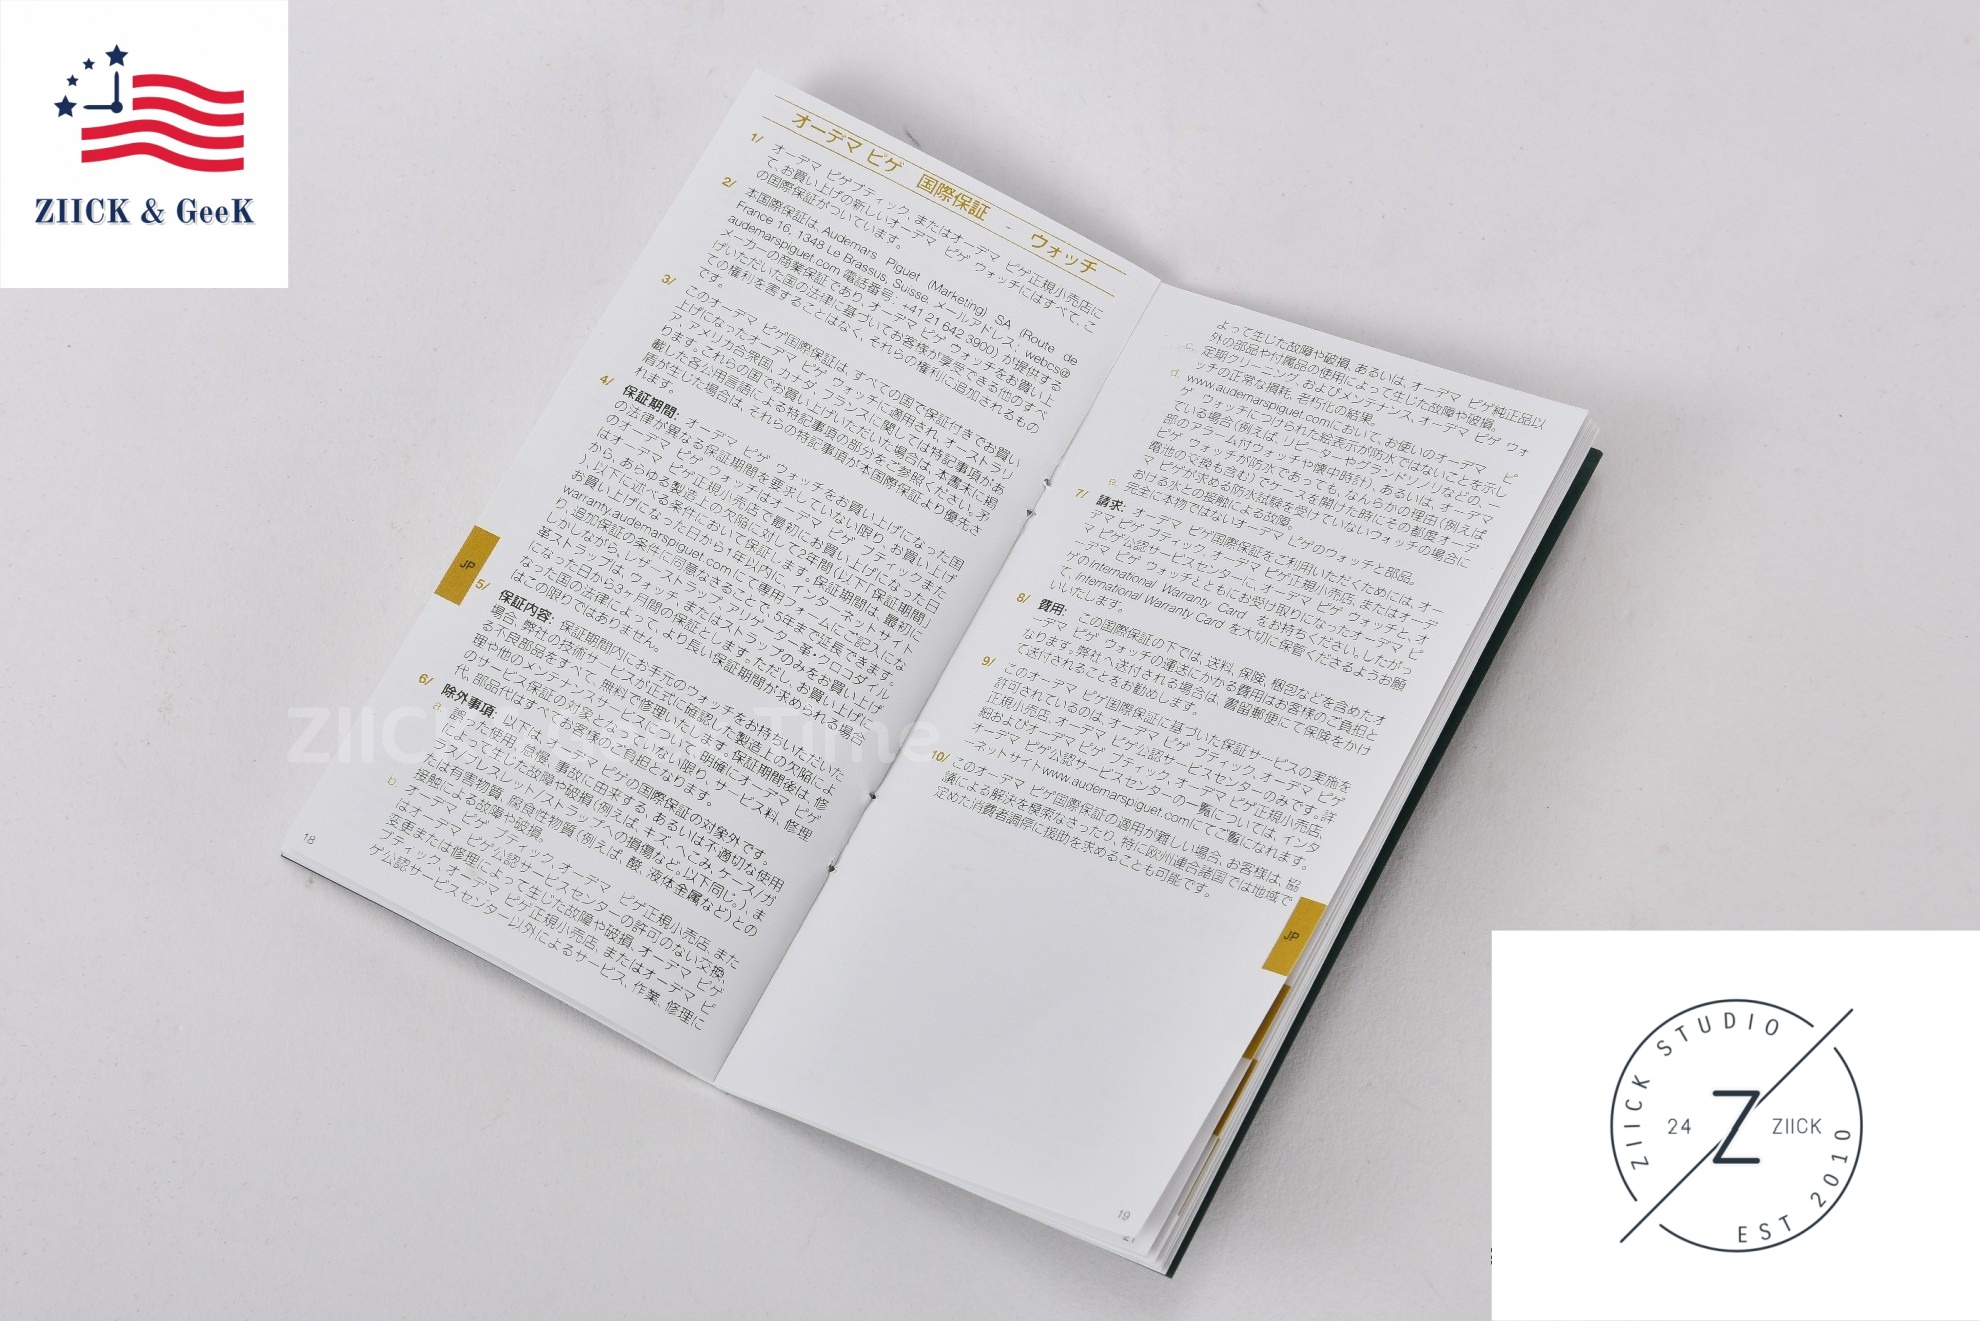 ZIICK & GeeK
オーデマ ピゲ 国際保証 - ウォッチ
1/ オーデマ ピゲブティック、またはオーデマ ピゲ正規小売店に
て、お買い上げの新しいオーデマ ピゲ ウォッチにはすべて、こ
の国際保証がついています。
2/ 本国際保証は、Audemars Piguet (Marketing) SA (Route de
France 16, 1348 Le Brassus, Suisse, メールアドレス : webcs@
audemarspiguet.com 電話番号 : +41 21 642 3900) が提供する
メーカーの商業保証であり、オーデマ ピゲ ウォッチをお買い上
げいただいた国の法律に基づいてお客様が享受できる他のすべ
ての権利を害することはなく、それらの権利に追加されるもの
です。
3/ このオーデマ ピゲ国際保証は、すべての国で保証付きでお買い
上げになったオーデマ ピゲ ウォッチに適用され、オーストラリ
ア、アメリカ合衆国、カナダ、フランスに関しては特記事項があ
ります。これらの国でお買い上げいただいた場合は、本書末に掲
載した各公用言語による特記事項の部分をご参照ください。矛
盾が生じた場合は、それらの特記事項が本国際保証より優先さ
れます。
4/ 保証期間: オーデマ ピゲ ウォッチをお買い上げになった国
の法律が異なる保証期間を要求していない限り、お買い上げ
のオーデマ ピゲ ウォッチはオーデマ ピゲ ブティックまた
はオーデマ ピゲ正規小売店で最初にお買い上げになった日
から、あらゆる製造上の欠陥に対して2年間 (以下「保証期間」
)、以下に述べる条件において保証します。保証期間は、最初に
お買い上げになった日から1年以内に、インターネットサイト
warranty.audemarspiguet.com にて専用フォームにご記入にな
り、追加保証の条件に同意なさることで、5年まで延長できます。
しかしながら、レザーストラップ、アリゲーター革・クロコダイル
革ストラップは、ウォッチ、またはストラップのみをお買い上げ
になった日から3ヶ月間の保証とします。ただし、お買い上げに
なった国の法律によって、より長い保証期間が求められる場合
はこの限りではありません。
JP
5/ 保証内容: 保証期間内にお手元のウォッチをお持ちいただいた
場合、弊社の技術サービスが正式に確認した製造上の欠陥によ
る不良部品をすべて、無料で修理いたします。保証期間後は、修
理や他のメンテナンスサービスについて、明確にオーデマ ピゲ
のサービス保証の対象となっていない限り、サービス料、修理
代、部品代はすべてお客様のご負担となります。
6/ 除外事項: 以下は、オーデマ ピゲの国際保証の対象外です。
a. 誤った使用、怠慢、事故に由来する、あるいは不適切な使用
によって生じた故障や破損 (例えば、キズ、へこみ、ケース/ガ
ラス/ブレスレット/ストラップへの損傷など。以下同じ。)、ま
たは有害物質、腐食性物質 (例えば、酸、液体金属など) との
接触による故障や破損。
b. オーデマ ピゲ ブティック、オーデマ ピゲ正規小売店、また
はオーデマ ピゲ公認サービスセンターの許可のない交換、
変更または修理によって生じた故障や破損、オーデマ ピゲ
ブティック、オーデマ ピゲ正規小売店、またはオーデマ ピ
ゲ公認サービスセンター以外によるサービス、作業、修理に
18
よって生じた故障や破損、あるいは、オーデマ ピゲ純正品以
外の部品や付属品の使用によって生じた故障や破損。
c. 定期クリーニング、およびメンテナンス、オーデマ ピゲ ウォ
ッチの正常な損耗、老朽化の結果。
d. www.audemarspiguet.comにおいて、お使いのオーデマ ピ
ゲ ウォッチにつけられた絵表示が防水ではないことを示し
ている場合 (例えば、リピーターやグランドソノリなどの、一
部のアラーム付ウォッチや懐中時計)、あるいは、オーデマ
ピゲ ウォッチが防水であっても、なんらかの理由 (例えば
電池の交換も含む) でケースを開けた時にその都度オーデ
マ ピゲが求める防水試験を受けていないウォッチの場合に
おける水との接触による故障。
e. 完全に本物ではないオーデマ ピゲのウォッチと部品。
7/ 請求: オーデマ ピゲ国際保証をご利用いただくためには、オー
デマ ピゲ ブティック、オーデマ ピゲ正規小売店、またはオーデ
マ ピゲ公認サービスセンターに、オーデマ ピゲ ウォッチと、オ
ーデマ ピゲ ウォッチとともにお受け取りになったオーデマ ピ
ゲのInternational Warranty Card をお持ちください。したがっ
て、International Warranty Card を大切に保管くださるようお願
いいたします。
8/ 費用: この国際保証の下では、送料、保険、梱包などを含めたオ
ーデマ ピゲ ウォッチの運送にかかる費用はお客様のご負担と
なります。弊社へ送付される場合は、書留郵便にて保険をかけ
て送付されることをお勧めします。
9/ このオーデマ ピゲ国際保証に基づいた保証サービスの実施を
許可されているのは、オーデマ ピゲ ブティック、オーデマ ピゲ
正規小売店、オーデマ ピゲ公認サービスセンターのみです。詳
細およびオーデマ ピゲ ブティック、オーデマ ピゲ正規小売店、
オーデマ ピゲ公認サービスセンターの一覧については、インタ
ーネットサイトwww.audemarspiguet.comにてご覧になれます。
10/ このオーデマ ピゲ国際保証の適用が難しい場合、お客様は、協
議による解決を模索なさったり、特に欧州連合諸国では地域で
定めた消費者調停に援助を求めることも可能です。
JP
19
21
ZIICK STUDIO
24 Z ZIICK
EST 2010